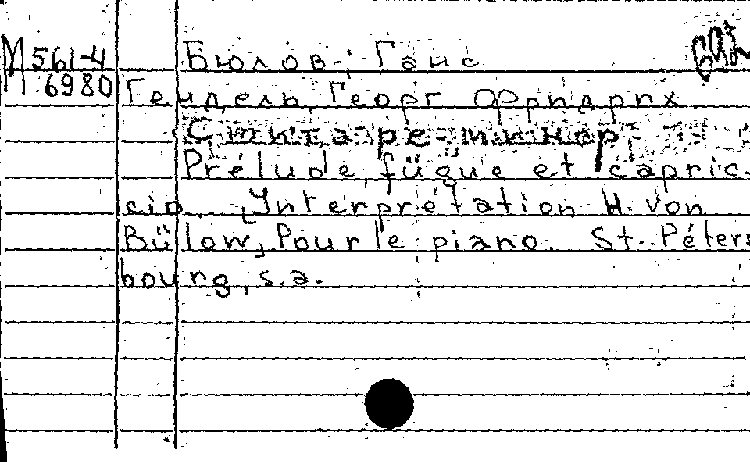 М 561-4 Бюлов, Ганс 692
6980 Гендель, Георг Фридрих
Сюита ре-минор.
Prélude, fügue et capric-
cio. Interpretation H. von
Bülow, Pour le piano. St. Péters
bourg, s.a.